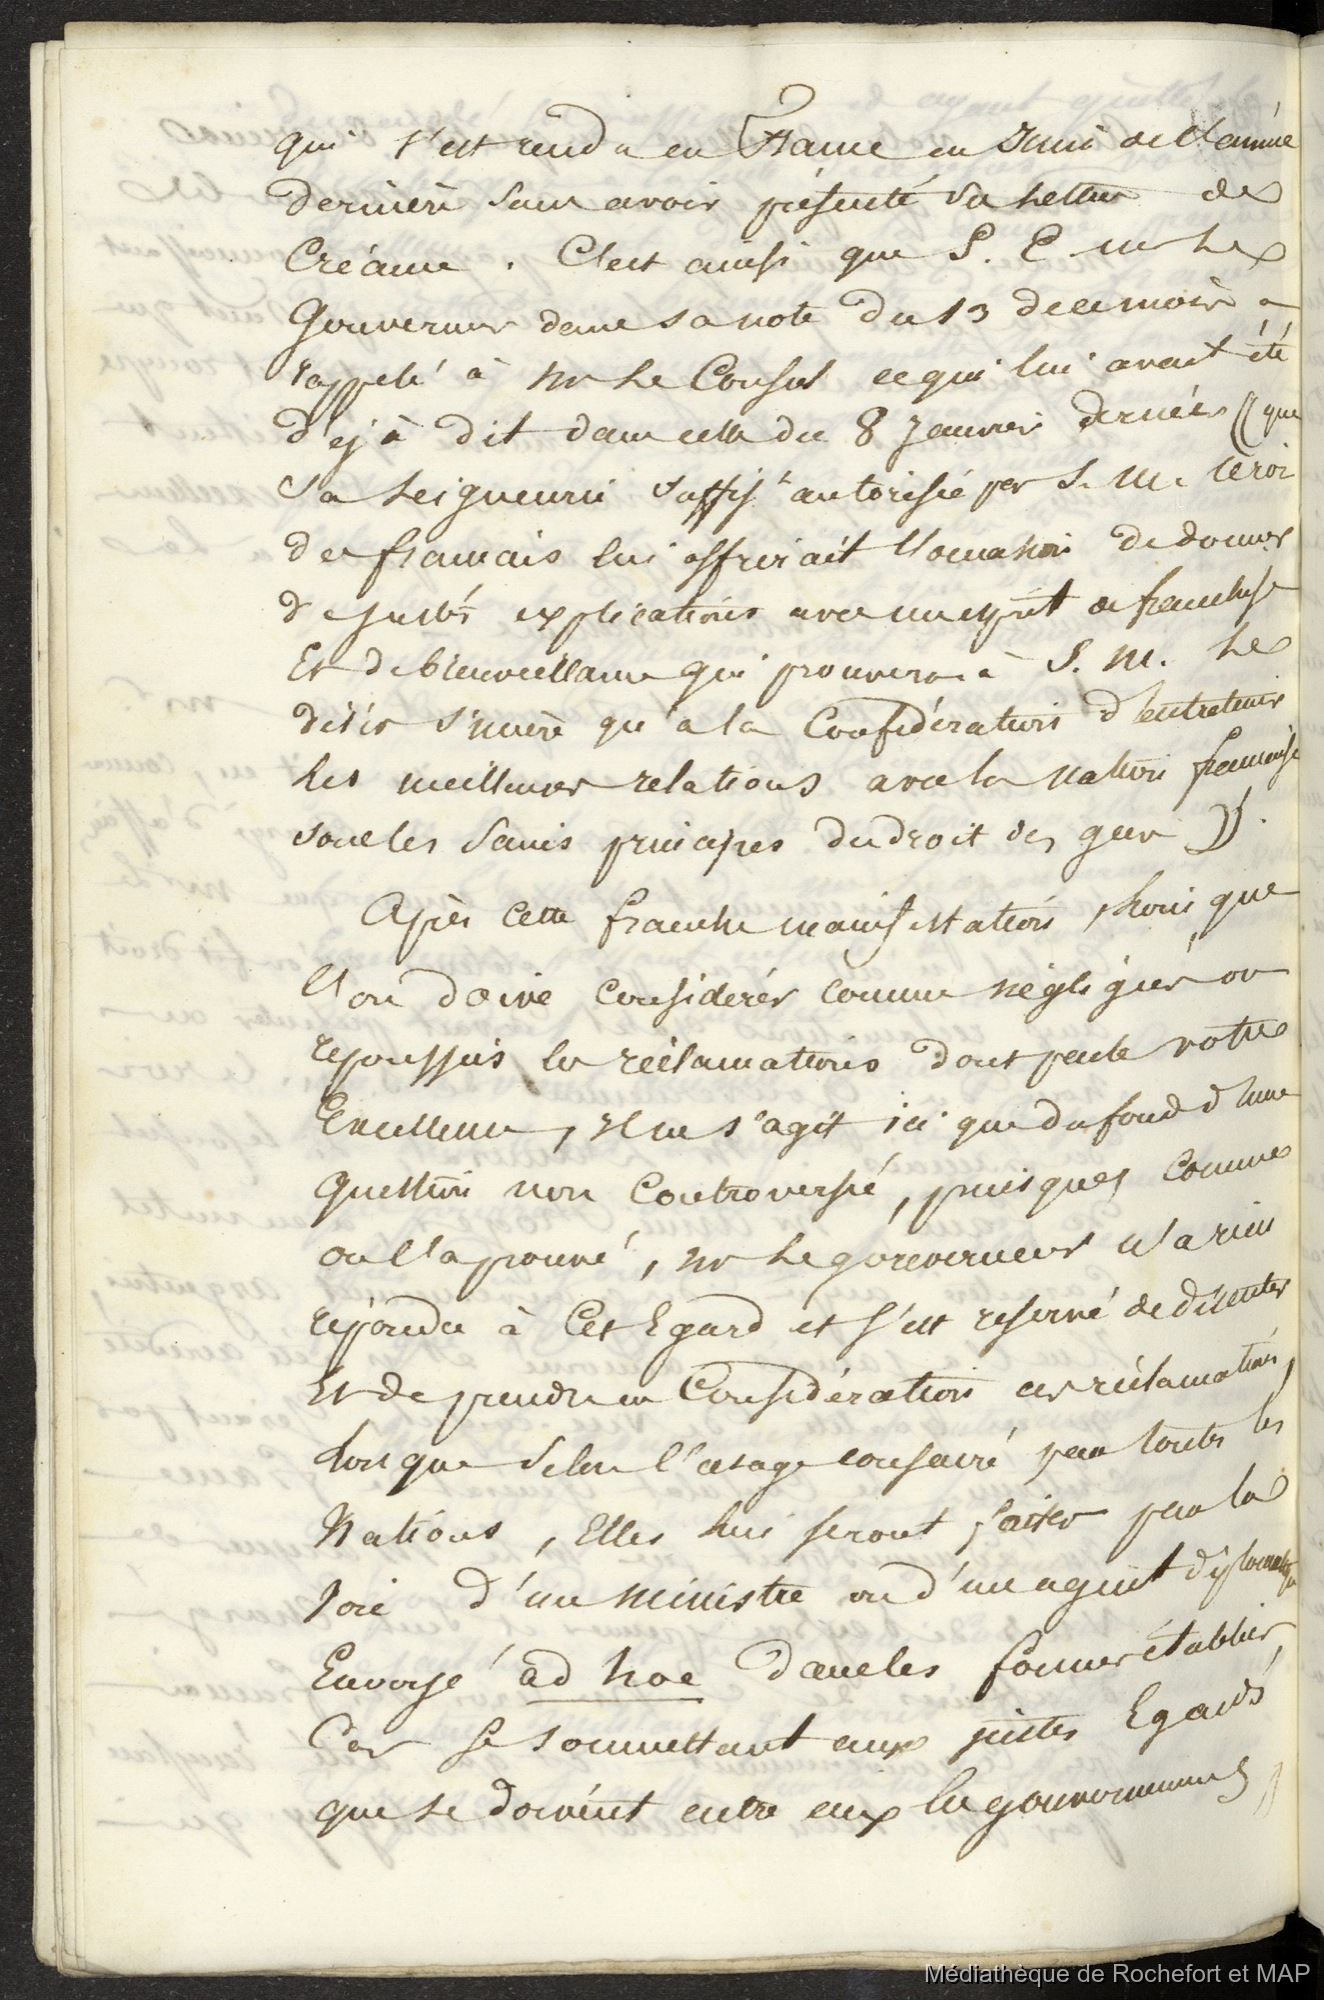 qui s'est rendu en France en Juin de l'année
dernière sans avoir présenté sa lettre de
Créance. C'est ainsi que S. E. mr Le
Gouverneur dans sa note du 13 de ce mois a
rappelé à mr Le Consul ce qui lui avait été
déjà dit dans celle du 8 Janvier dernier (( que
Sa Seigneurie suffis.t autorisée par S. M. le roi
des français lui offrirait l'occasion de donner
de justes explications avec un esprit de franchise
Et de bienveillance qui prouvera à S. M. Le
désir sincère qu'a la Confédération d'entretenir
les meilleures relations avec la nation française
sous les sains principes du droit des gens )).
Après cette franche manifestation, loin que
l'on doive considérer comme négligées ou
repoussées les réclamations dont parle votre
Excellence, il ne s'agit ici que du fond d'une
question non Controversée, puisque, comme
on l'a prouvé, mr Le gouverneur n'a rien
répondu à Cet Egard et s'est reservé de discuter
Et de prendre en Considération ces réclamations,
lorsque selon l'usage consacré par toutes les
Nations, Elles lui seront faites par la
voie d'un Ministre ou d'un agent diplomatique
Envoyé ad hoc dans les formes établies,
Car se soumettant aux justes Egards
que se doivent entre eux les gouvernemens,
Médiathèque de Rochefort et MAP